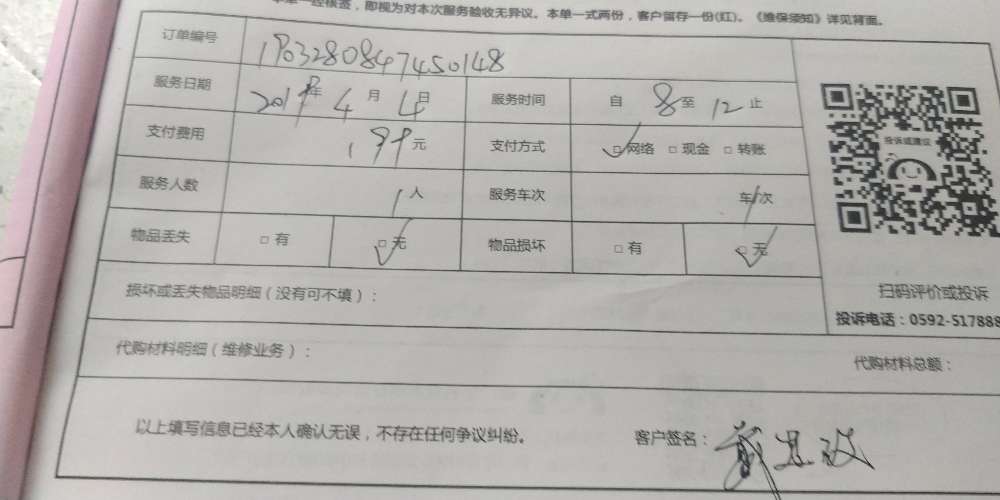 本单一经核签，即视为对本次服务验收无异议。本单一式两份，客户留存一份(红)。《维保须知》详见背面。
订单编号 1903280847450148
服务日期 2019年 4月 4日 服务时间 自 8 至 12 止
支付费用 199元 支付方式 □网络 □现金 □转账
服务人数 1人 服务车次 车/次
物品丢失 □有 □无 物品损坏 □有 □无
投诉或建议
扫码评价或投诉
投诉电话：0592-517888
损坏或丢失物品明细（没有可不填）：
代购材料明细（维修业务）： 代购材料总额：
以上填写信息已经本人确认无误，不存在任何争议纠纷。 客户签名：戴